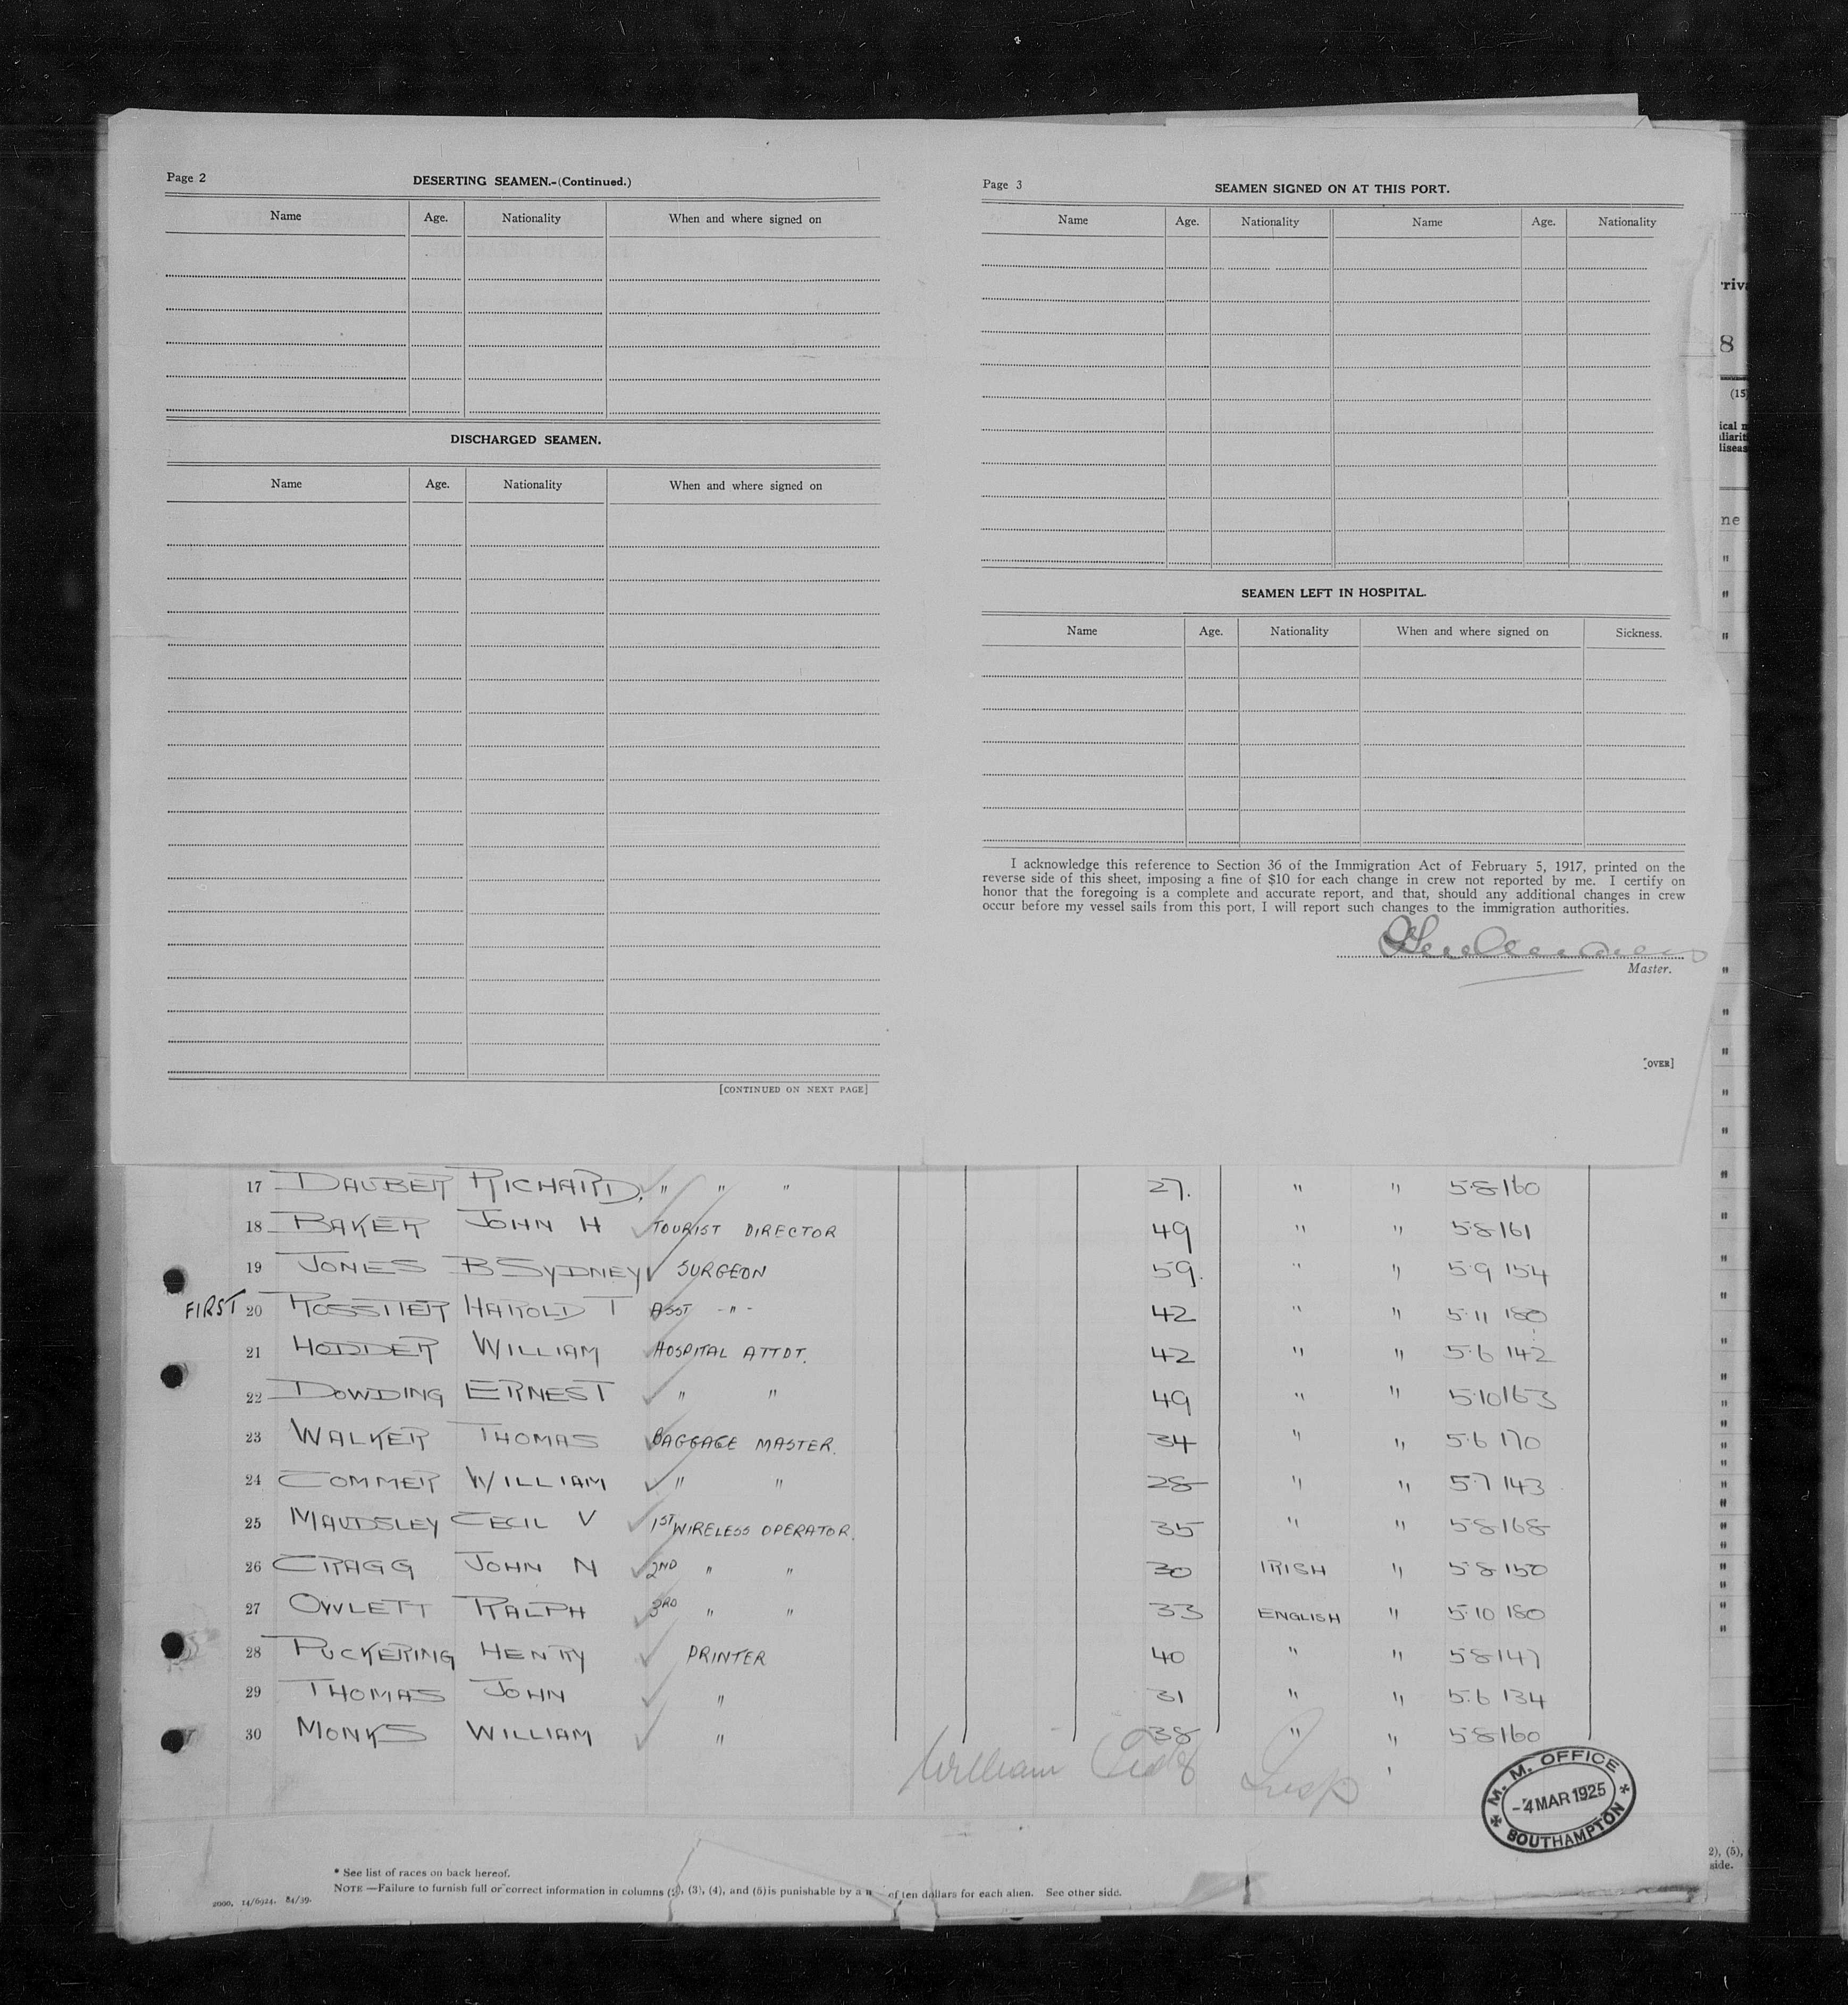 Page 2 DESERTING SEAMEN.-(Continued.)
Name Age. Nationality When and where signed on
DISCHARGED SEAMEN.
Name Age. Nationality When and where signed on
[CONTINUED ON NEXT PAGE]
Page 3 SEAMEN SIGNED ON AT THIS PORT.
Name Age. Nationality Name Age. Nationality
SEAMEN LEFT IN HOSPITAL.
Name Age. Nationality When and where signed on Sickness.
I acknowledge this reference to Section 36 of the Immigration Act of February 5, 1917, printed on the
reverse side of this sheet, imposing a fine of $10 for each change in crew not reported by me. I certify on
honor that the foregoing is a complete and accurate report, and that, should any additional changes in crew
occur before my vessel sails from this port, I will report such changes to the immigration authorities.
Master.
[OVER]
17 DAUBER RICHARD. " " " 27. " " 5·8 160
18 BAKER JOHN H TOURIST DIRECTOR 49 " " 5·8 161
19 JONES B SYDNEY SURGEON 59. " " 5·9 154
FIRST 20 ROSSITER HAROLD T ASST -"- 42 " " 5·11 180
21 HODDER WILLIAM HOSPITAL ATTDT. 42 " " 5·6 142
22 DOWDING ERNEST " " 49 " " 5·10 163
23 WALKER THOMAS BAGGAGE MASTER. 34 " " 5·6 170
24 COMMER WILLIAM " " 28 " " 5·7 143
25 MAUDSLEY CECIL V 1ST WIRELESS OPERATOR. 35 " " 5·8 168
26 CRAGG JOHN N 2ND " " 30 IRISH " 5·8 150
27 OWLETT RALPH 3RD " " 33 ENGLISH " 5·10 180
28 PUCKERING HENRY PRINTER 40 " " 5·8 147
29 THOMAS JOHN " 31 " " 5·6 134
30 MONKS WILLIAM " 38 " " 5·8 160
William Insp
M. M. OFFICE
-4 MAR 1925
SOUTHAMPTON
* See list of races on back hereof.
NOTE—Failure to furnish full or correct information in columns (2), (3), (4), and (5) is punishable by a of ten dollars for each alien. See other side.
2000. 14/6924. 84/39.
8
(15
ne
2), (5),
side.